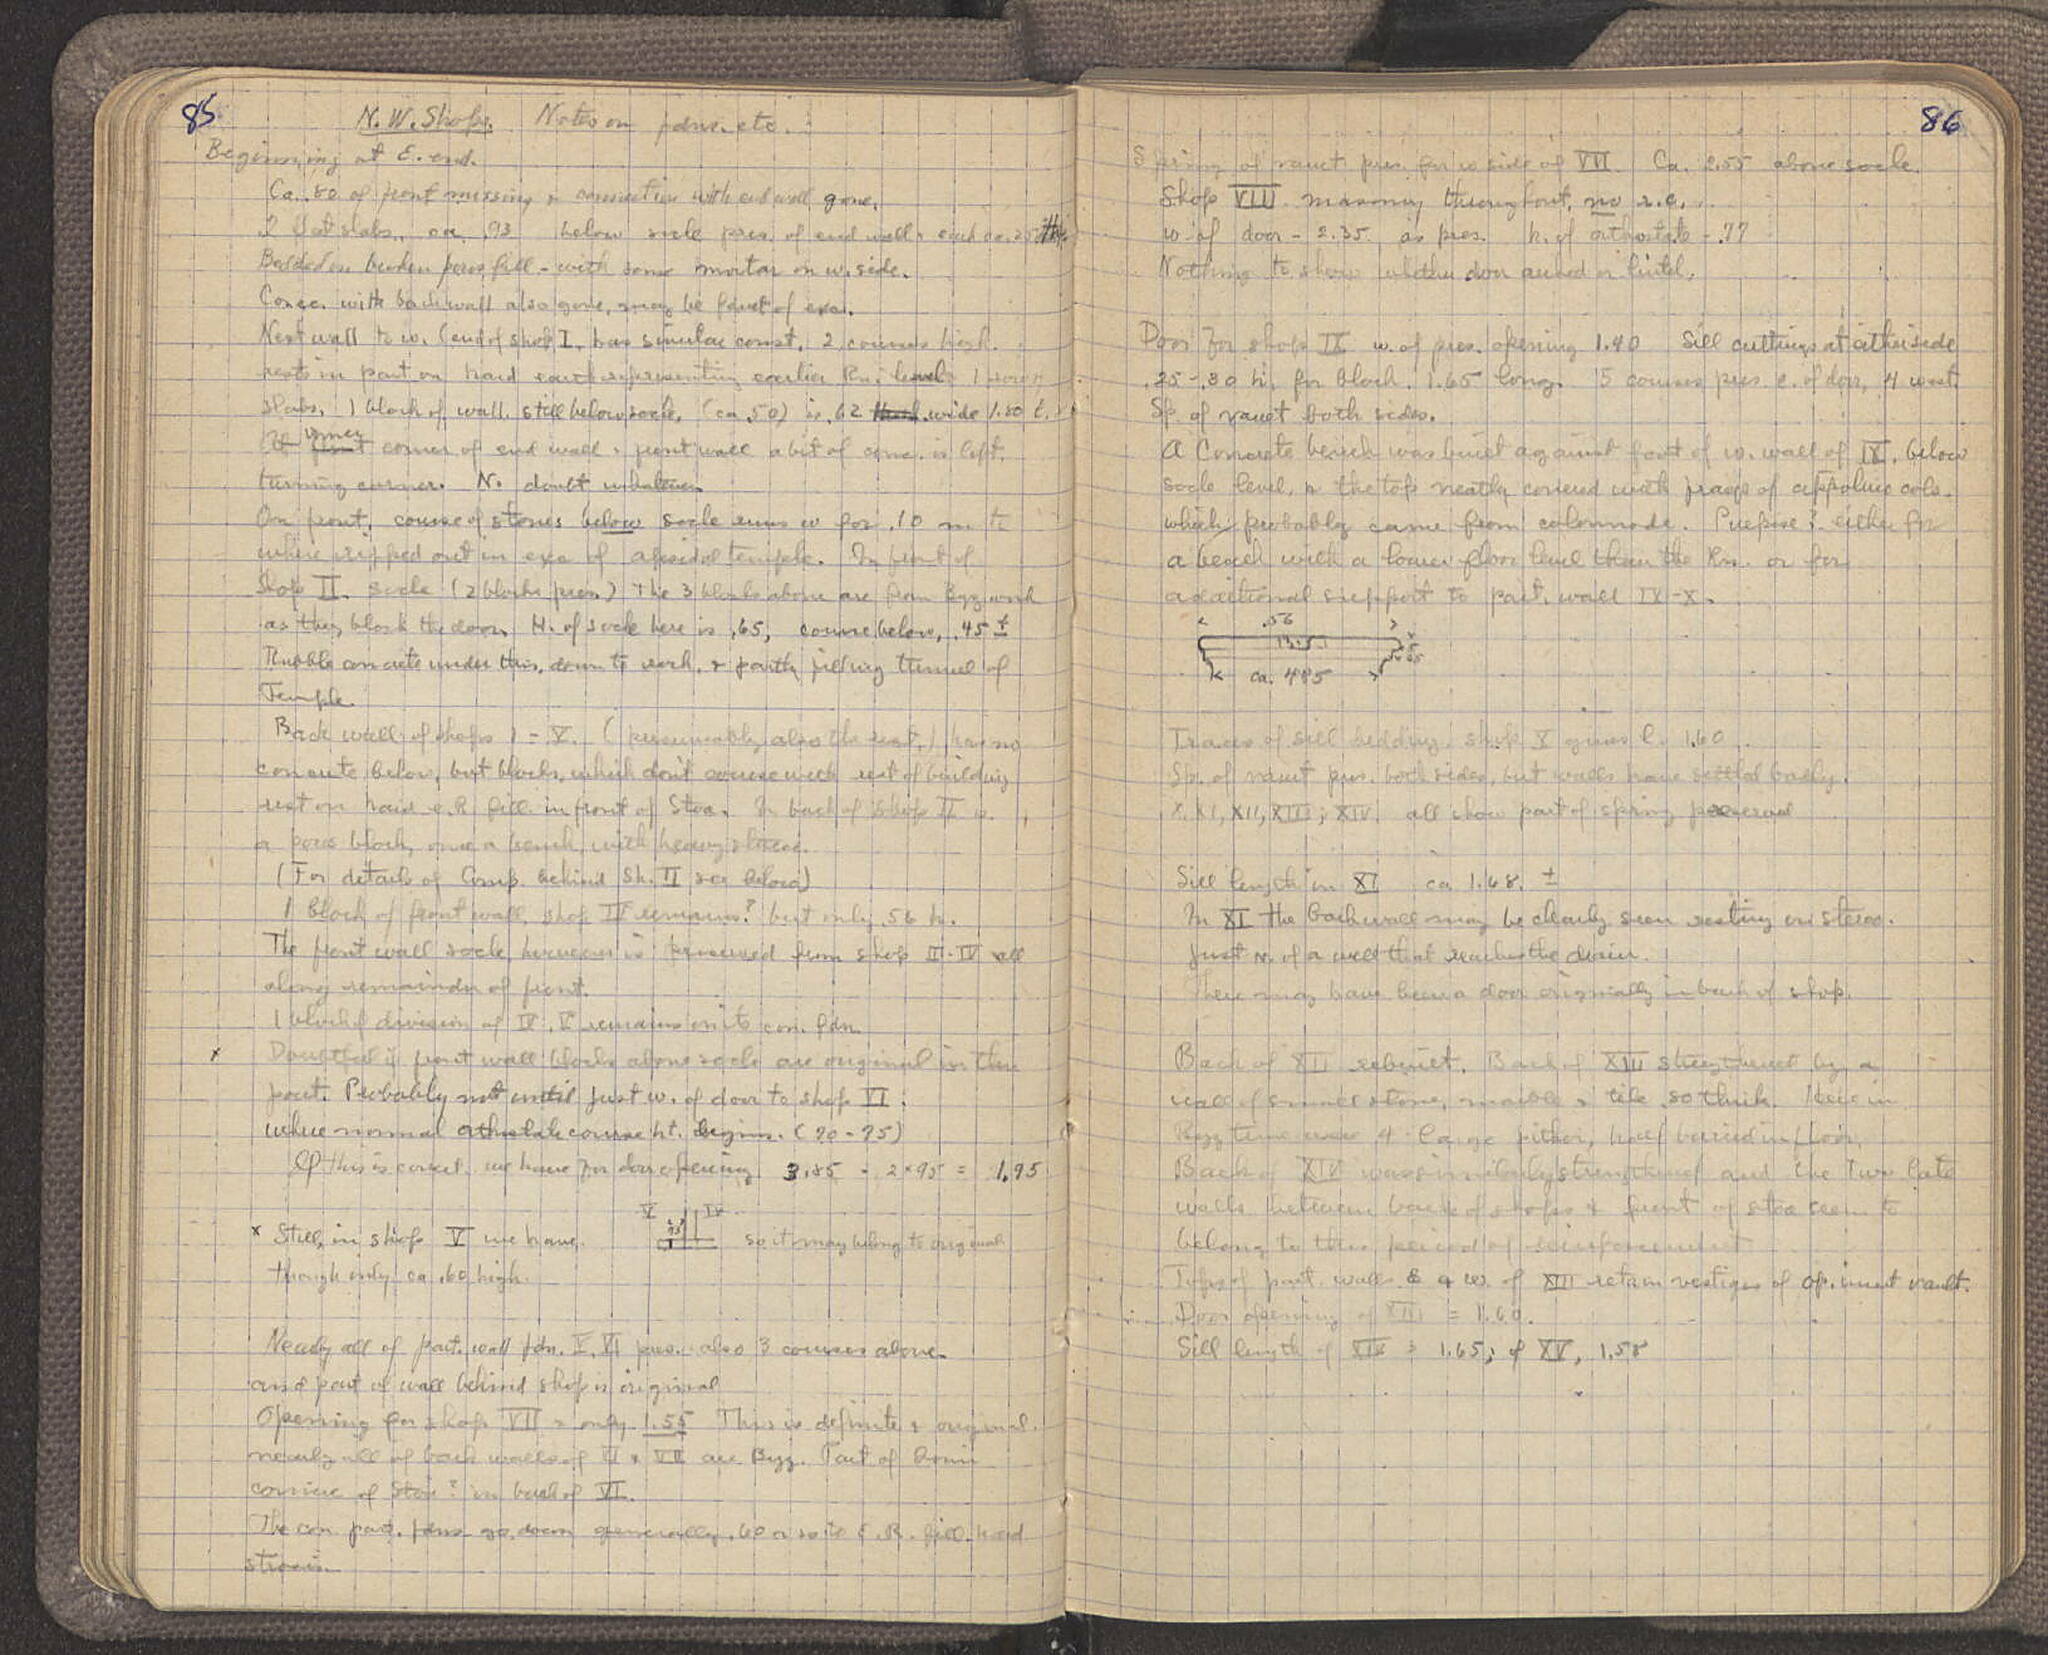 85
N. W. Shops. Notes on fdns. etc.
Beginning at E. end.
Ca. .80 of front missing & connection with end wall gone.
2 flat slabs, ca .93 below socle pres. of end wall, each ca. .25 thk.
Bedded in broken poros fill - with some mortar on w. side.
Conec. with back wall also gone, may be fault of exc.
Next wall to w. (end of shop I, has similar const. 2 courses high.
rests in part on hard earth representing earlier Rn. level 1 row
slabs, 1 block of wall still below socle, (ca .50) is .62 wide 1.80 l.
At inner corner of end wall & front wall a bit of conc. is left,
turning corner. No doubt whatever.
On front, course of stones below socle runs w for .10 m to
where ripped out in exc of apsidal temple. In front of
Shop II. socle (2 blocks pres.) The 3 blocks above are from Byz. work
as they block the door. H. of socle here is .65, course below, .45 ±
Rubble concrete under this, down to rock, & partly filling tunnel of
Temple.
Back wall of shops I - V. (presumably also the rest,) has no
concrete below, but blocks, which don't course with rest of building
rest on hard e.R fill in front of Stoa. In back of shop II is
a poros block, once a bench, with heavy stucco.
(For details of Comp. behind Sh. II see below)
1 block of front wall, shop IV remains? but only .56 h.
The front wall socle however is preserved from shop III-IV all
along remainder of front.
1 block of division of IV, V remains on its con. fdn.
x Doubtful if front wall blocks above socle are original in this
part. Probably not until just w. of door to shop VI.
where normal orthostate course ht. begins. (70-75)
If this is correct, we have for door opening 3.85 - 2x95 = 1.95
V IV
x Still, in shop V we have .95 so it may belong to original
though only ca .60 high.
Nearly all of part. wall fdn. V, VI pres. also 3 courses above.
and part of wall behind shop is original
Opening for shop VII is only 1.55 This is definite & original.
nearly all of back walls of VI & VII are Byz. Part of Ionic
cornice of Stoa? in back of VI.
The con. part. fdns go down generally .60 or so to E.R. fill. hard
86
Spring of vault pres. for w side of VII. Ca. 2.55 above socle.
Shop VIII masonry throughout, no r.c.
w. of door - 2.35 as pres. h. of orthostate - .77
Nothing to show whether door arched or lintel.
Door for shop IX w. of pres. opening 1.40 Sill cuttings at either side
.25-.30 h. for block. 1.65 long. 5 courses pres. e. of door, 4 west
Sp. of vault both sides.
A Concrete bench was built against foot of w. wall of IX, below
socle level, & the top neatly covered with frags of apsidal cols.
which probably came from colonnade. Purpose? either for
a bench with a lower floor level than the Rn. or for
additional support to part. wall IX-X.
.56
ca. 485
Traces of sill bedding, shop X gives l. 1.60
Sp. of vault pres. both sides, but walls have settled badly.
X, XI, XII, XIII; XIV. all show part of spring preserved
Sill length in XI ca 1.68. ±
In XI the back wall may be clearly seen resting on stereo.
Just n. of a well that reaches the drain.
There may have been a door originally in back of shop.
Back of XII rebuilt. Back of XIII strengthened by a
wall of small stone, marble & tile .50 thick. Here in
Byz time were 4 large pithoi, half buried in floor.
Back of XIV was similarly strengthened and the two late
walls between back of shops & front of stoa seem to
belong to this period of reinforcement
Tops of part. walls e & w. of XIII retain vestiges of op. incert vault.
Door opening of XIII = 1.60.
Sill length of XIV is 1.65; of XV, 1.58